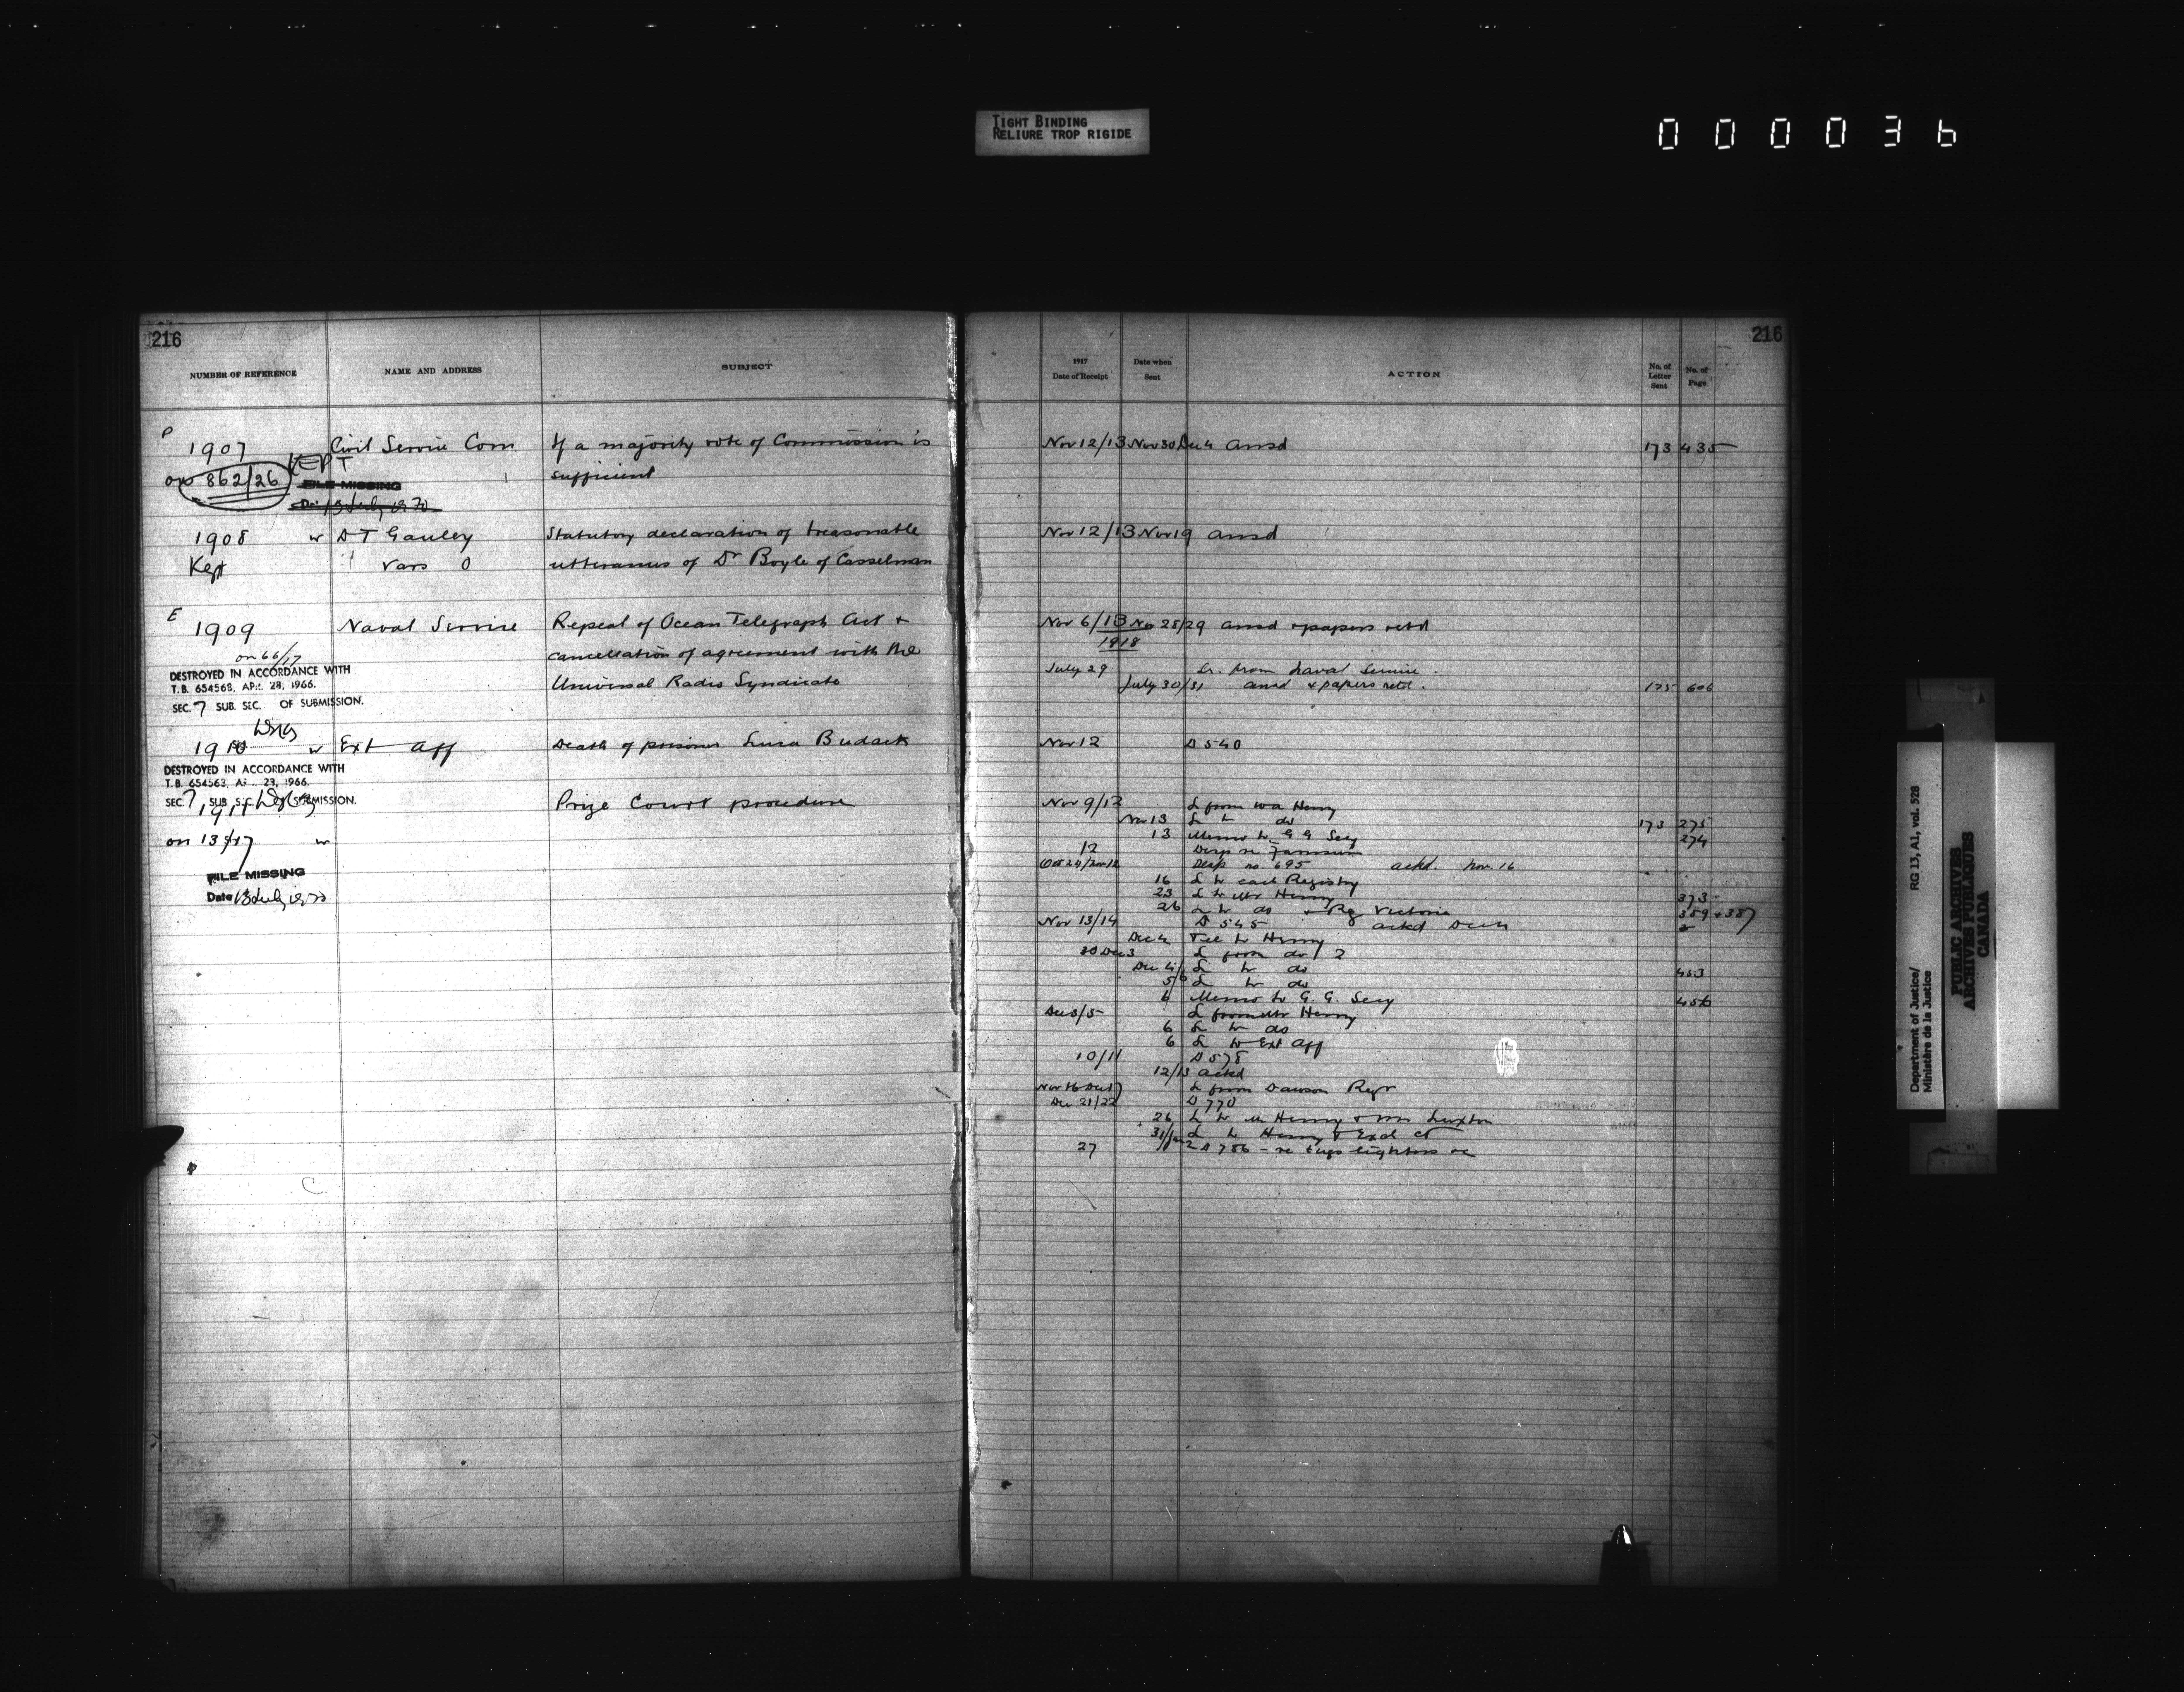 TIGHT BINDING
RELIURE TROP RIGIDE
000036
216
NUMBER OF REFERENCE
NAME AND ADDRESS
SUBJECT
P
1907
Civil Service Com
If a majority vote of Commission is
KEPT
on 862/26
FILE MISSING
sufficient
13 July 1970
1908
w
D T Gauley
Statutory declaration of treasonable
Kept
Vars O
utterances of Dr Boyle of Casselman
E
1909
Naval Service
Repeal of Ocean Telegraph Act +
on 66/17
cancellation of agreement with the
DESTROYED IN ACCORDANCE WITH
T.B. 654563, APR. 28, 1966.
Universal Radio Syndicate
SEC. 7 SUB. SEC. OF SUBMISSION.
1910
w
Ext Aff
Death of prisoner Luca Budack
DESTROYED IN ACCORDANCE WITH
T.B. 654563, 1966.
SEC. 7, SUB. SUBMISSION.
1911
Prize Court procedure
w
FILE MISSING
Date 13 July 1970
216
1917
Date of Receipt
Date when
Sent
ACTION
No. of
Letter
Sent
No. of
Page
Nov 12/13 Nov 30 Dec 4 ansd 173 435
Nov 12/13 Nov 19 ansd
Nov 6/13 Nov 28/29 ansd + papers retd
1918
July 29 Lr. from Naval Service.
July 30/31 ansd + papers retd. 175 606
Nov 12 D 540
Nov 9/12 L from Wa Henry
Nov 13 L to do 173 275
13 Memo to G G Secy 274
12 Desp re
Oct 24/Nov 12 Desp no 695 ackd. Nov. 16
16 L to each Registry
23 L to Mr Henry 373
26 L to do + Reg Victoria 389 + 387
Nov 13/14 D 545 ackd Dec 4
Dec 4 Tel to Henry
30 Dec 3 L from do / 2
Dec 4/ L to do 453
5/6 L to do
6 Memo to G. G. Secy 456
Dec 3/5 L from Mr Henry
6 L to do
6 L to Ext Aff
10/11 D 578
12/13 ackd
Nov 16 Dec 17 L from Dawson Regr
Dec 21/22 D 770
26 L to Mr Henry + Mr Luxton
31/Jan 2 L to Henry + Exch Ct
27 D 786 - re tugs lighters &c
Department of Justice/
Ministère de la Justice
RG 13, A1, vol. 528
PUBLIC ARCHIVES
ARCHIVES PUBLIQUES
CANADA